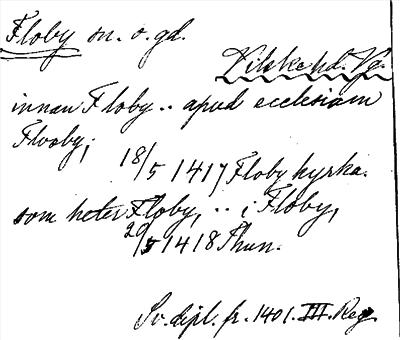 Floby sn. o. gd.
Vilske hd. Vg.
innan Floby .. apud ecclesiam
Flooby;
18/5 1417 Floby kyrka.
som heter Floby, .. i Floby,
20/5 1418 Thun.
Sv. dipl. fr. 1401. III. Reg.